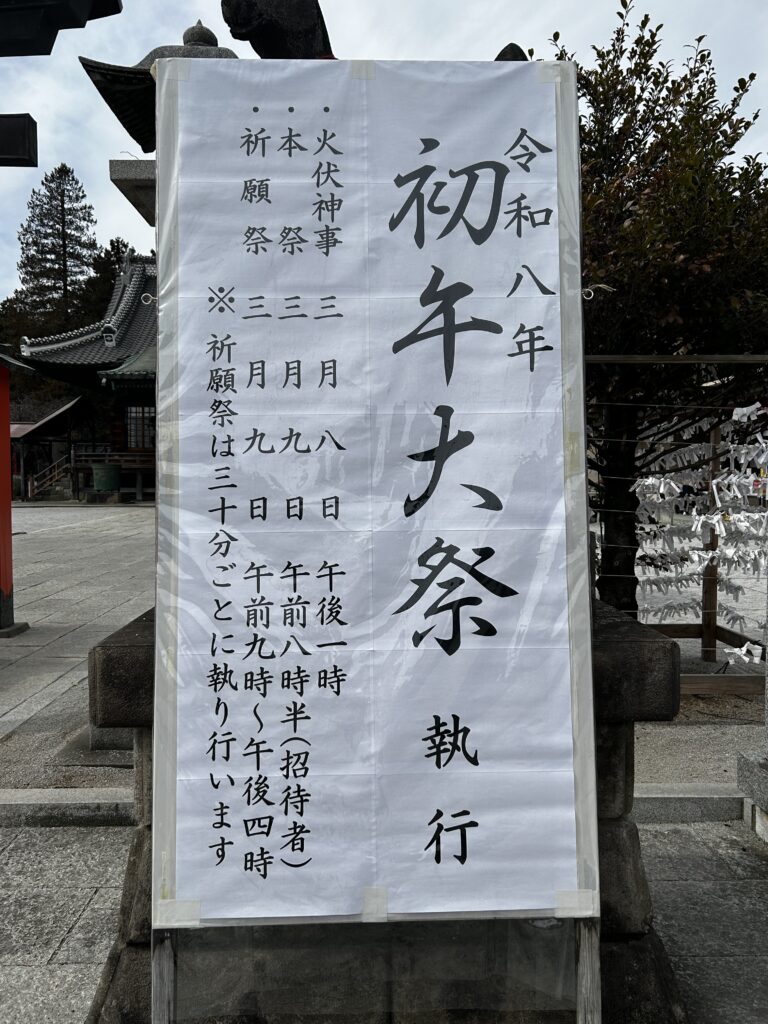 令和八年
初午大祭 執行
・火伏神事 三月八日 午後一時
・本祭 三月九日 午前八時半(招待者)
・祈願祭 三月九日 午前九時〜午後四時
※祈願祭は三十分ごとに執り行います